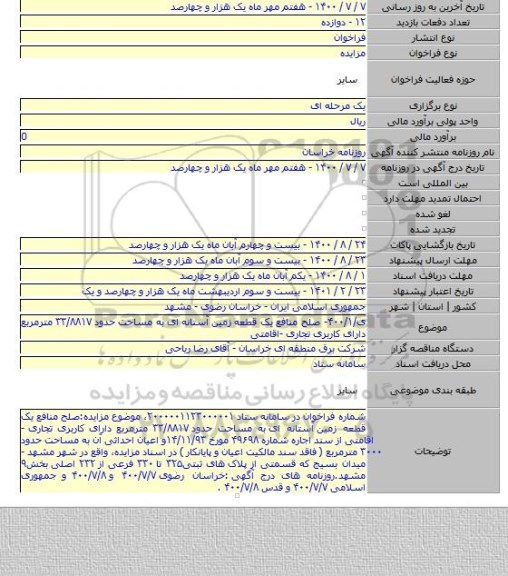 تاریخ آخرین به روز رسانی ۷ / ۷ / ۱۴۰۰ - هفتم مهر ماه یک هزار و چهارصد
تعداد دفعات بازدید ۱۲ - دوازده
نوع انتشار فراخوان
نوع فراخوان مزایده
حوزه فعالیت فراخوان سایر
نوع برگزاری یک مرحله ای
واحد پولی برآورد مالی ریال
برآورد مالی 0
نام روزنامه منتشر کننده آگهی روزنامه خراسان
تاریخ درج آگهی در روزنامه ۷ / ۷ / ۱۴۰۰ - هفتم مهر ماه یک هزار و چهارصد
بین المللی است
احتمال تمدید مهلت دارد
لغو شده
تجدید شده
تاریخ بازگشایی پاکات ۲۴ / ۸ / ۱۴۰۰ - بیست و چهارم آبان ماه یک هزار و چهارصد
مهلت ارسال پیشنهاد ۲۳ / ۸ / ۱۴۰۰ - بیست و سوم آبان ماه یک هزار و چهارصد
مهلت دریافت اسناد ۱ / ۸ / ۱۴۰۰ - یکم آبان ماه یک هزار و چهارصد
تاریخ اعتبار پیشنهاد ۲۳ / ۲ / ۱۴۰۱ - بیست و سوم اردیبهشت ماه یک هزار و چهارصد و یک
کشور | استان | شهر جمهوری اسلامی ایران - خراسان رضوی - مشهد
موضوع ی/۴۰۰/۱- صلح منافع یک قطعه زمین آستانه ای به مساحت حدود ۳۳/۸۸۱۷ مترمربع
دارای کاربری تجاری -اقامتی
دستگاه مناقصه گزار شرکت برق منطقه ای خراسان - آقای رضا ریاحی
محل دریافت اسناد سامانه ستاد
طبقه بندی موضوعی سایر
توضیحات شماره فراخوان در سامانه ستاد ۲۰۰۰۰۰۱۱۲۳۰۰۰۰۰۱، موضوع مزایده:صلح منافع یک
قطعه زمین آستانه ای به مساحت حدود ۳۳/۸۸۱۷ مترمربع دارای کاربری تجاری -
اقامتی از سند اجاره شماره ۴۹۶۹۸ مورخ ۱۴/۱۱/۹۳و اعیان احداثی آن به مساحت حدود
۳۰۰۰ مترمربع ( فاقد سند مالکیت اعیان و پایانکار ) در اسناد مزایده، واقع در شهر مشهد -
میدان بسیج که قسمتی از پلاک های ثبتی۳۲۵ تا ۳۳۰ فرعی از ۲۳۲ اصلی بخش۹
مشهد.روزنامه های درج آگهی :خراسان رضوی ۴۰۰/۷/۷ و ۴۰۰/۷/۸ و جمهوری
اسلامی ۴۰۰/۷/۷ و قدس ۴۰۰/۷/۸ .
پایگاه اطلاع رسانی مناقصه و مزایده